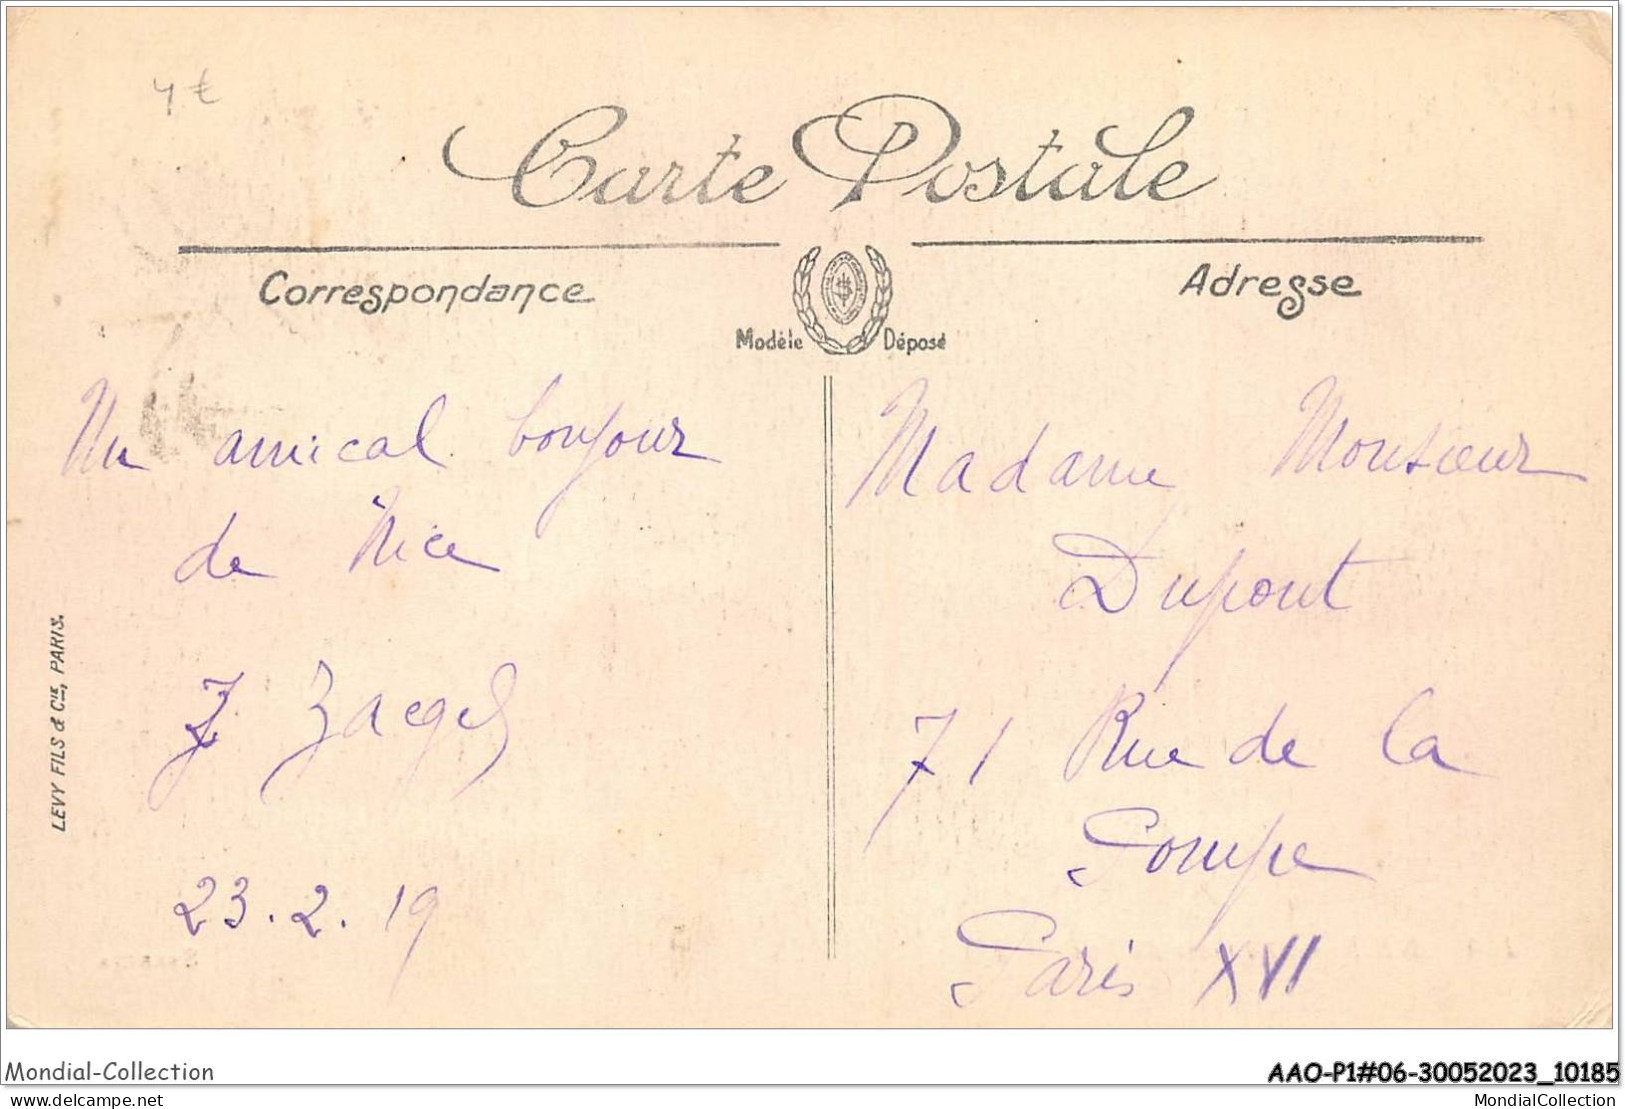 4 €
Carte Postale
Correspondance
Adresse
Modèle Déposé
Un amical bonjour
de Nice
23.2.19
Madame Monsieur
Dupont
71 Rue de la
Pompe
Paris XVI
LEVY FILS & Cie, PARIS.
Mondial-Collection
AAO-P1#06-30052023_10185
delcampe.net
MondialCollection